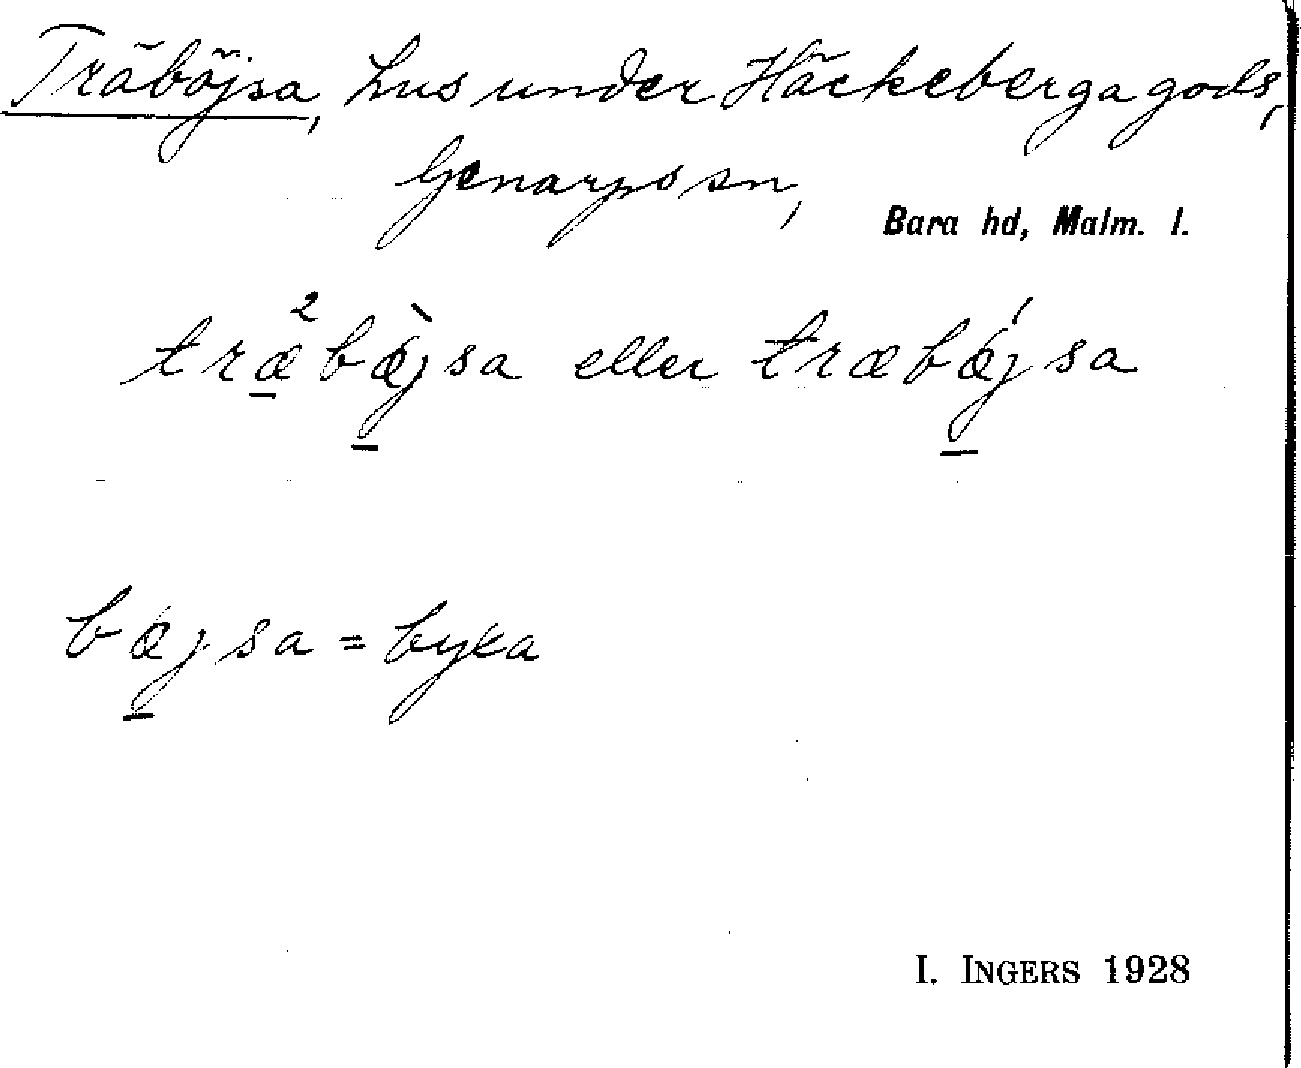 Träböjsa, hus under Häckeberga gods,
Genarps sn,
Bara hd, Malm. l.
træ̱²bæ̱̀jsa eller træbǽ̱jsa
bæ̱jsa = byxa
I. INGERS 1928